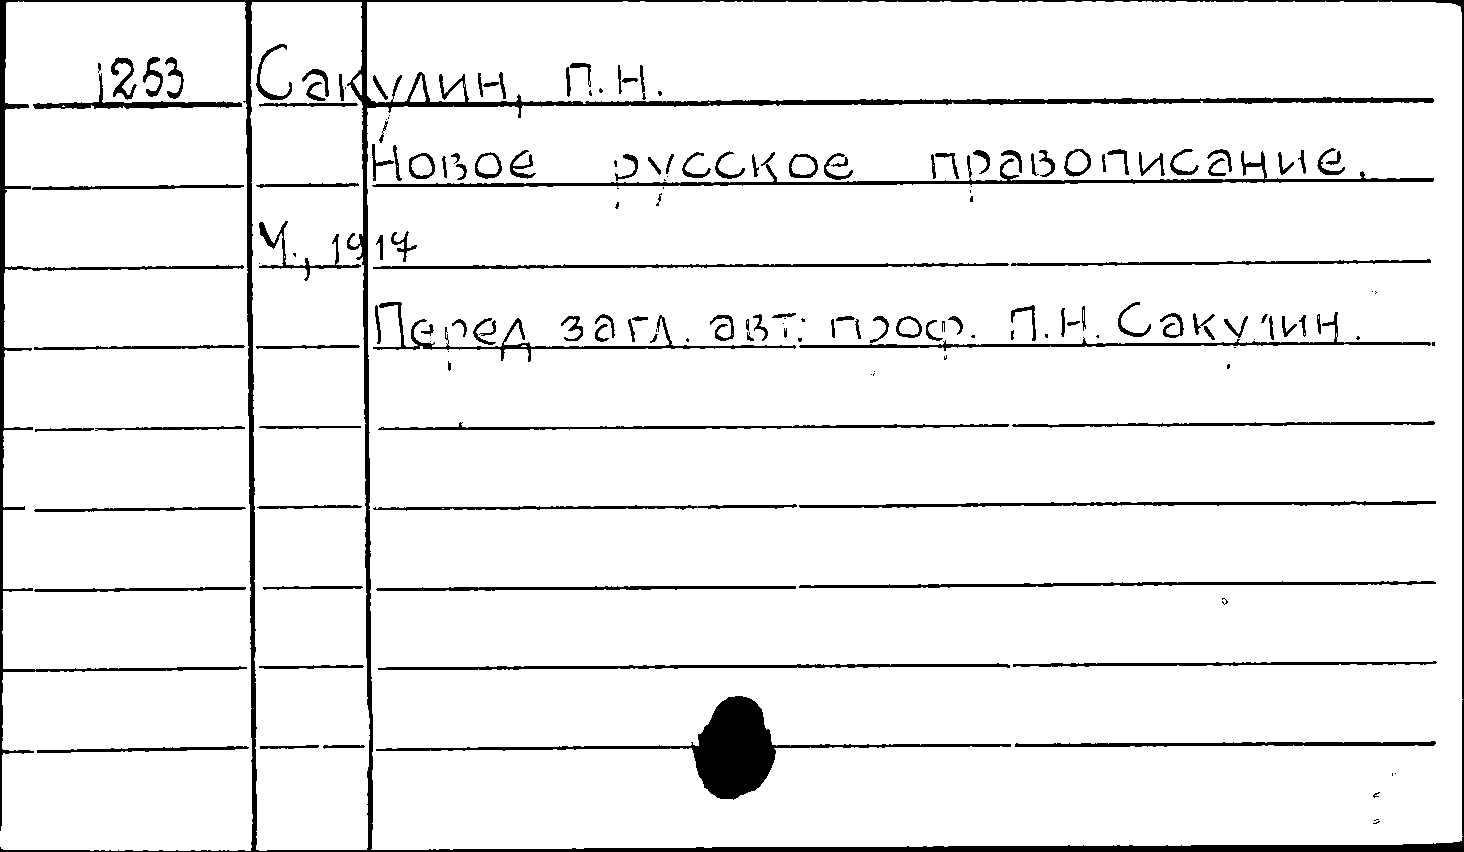 1253 Сакулин, П.Н.
Новое русское правописание.
М., 1917
Перед загл. авт: проф. П.Н. Сакулин.